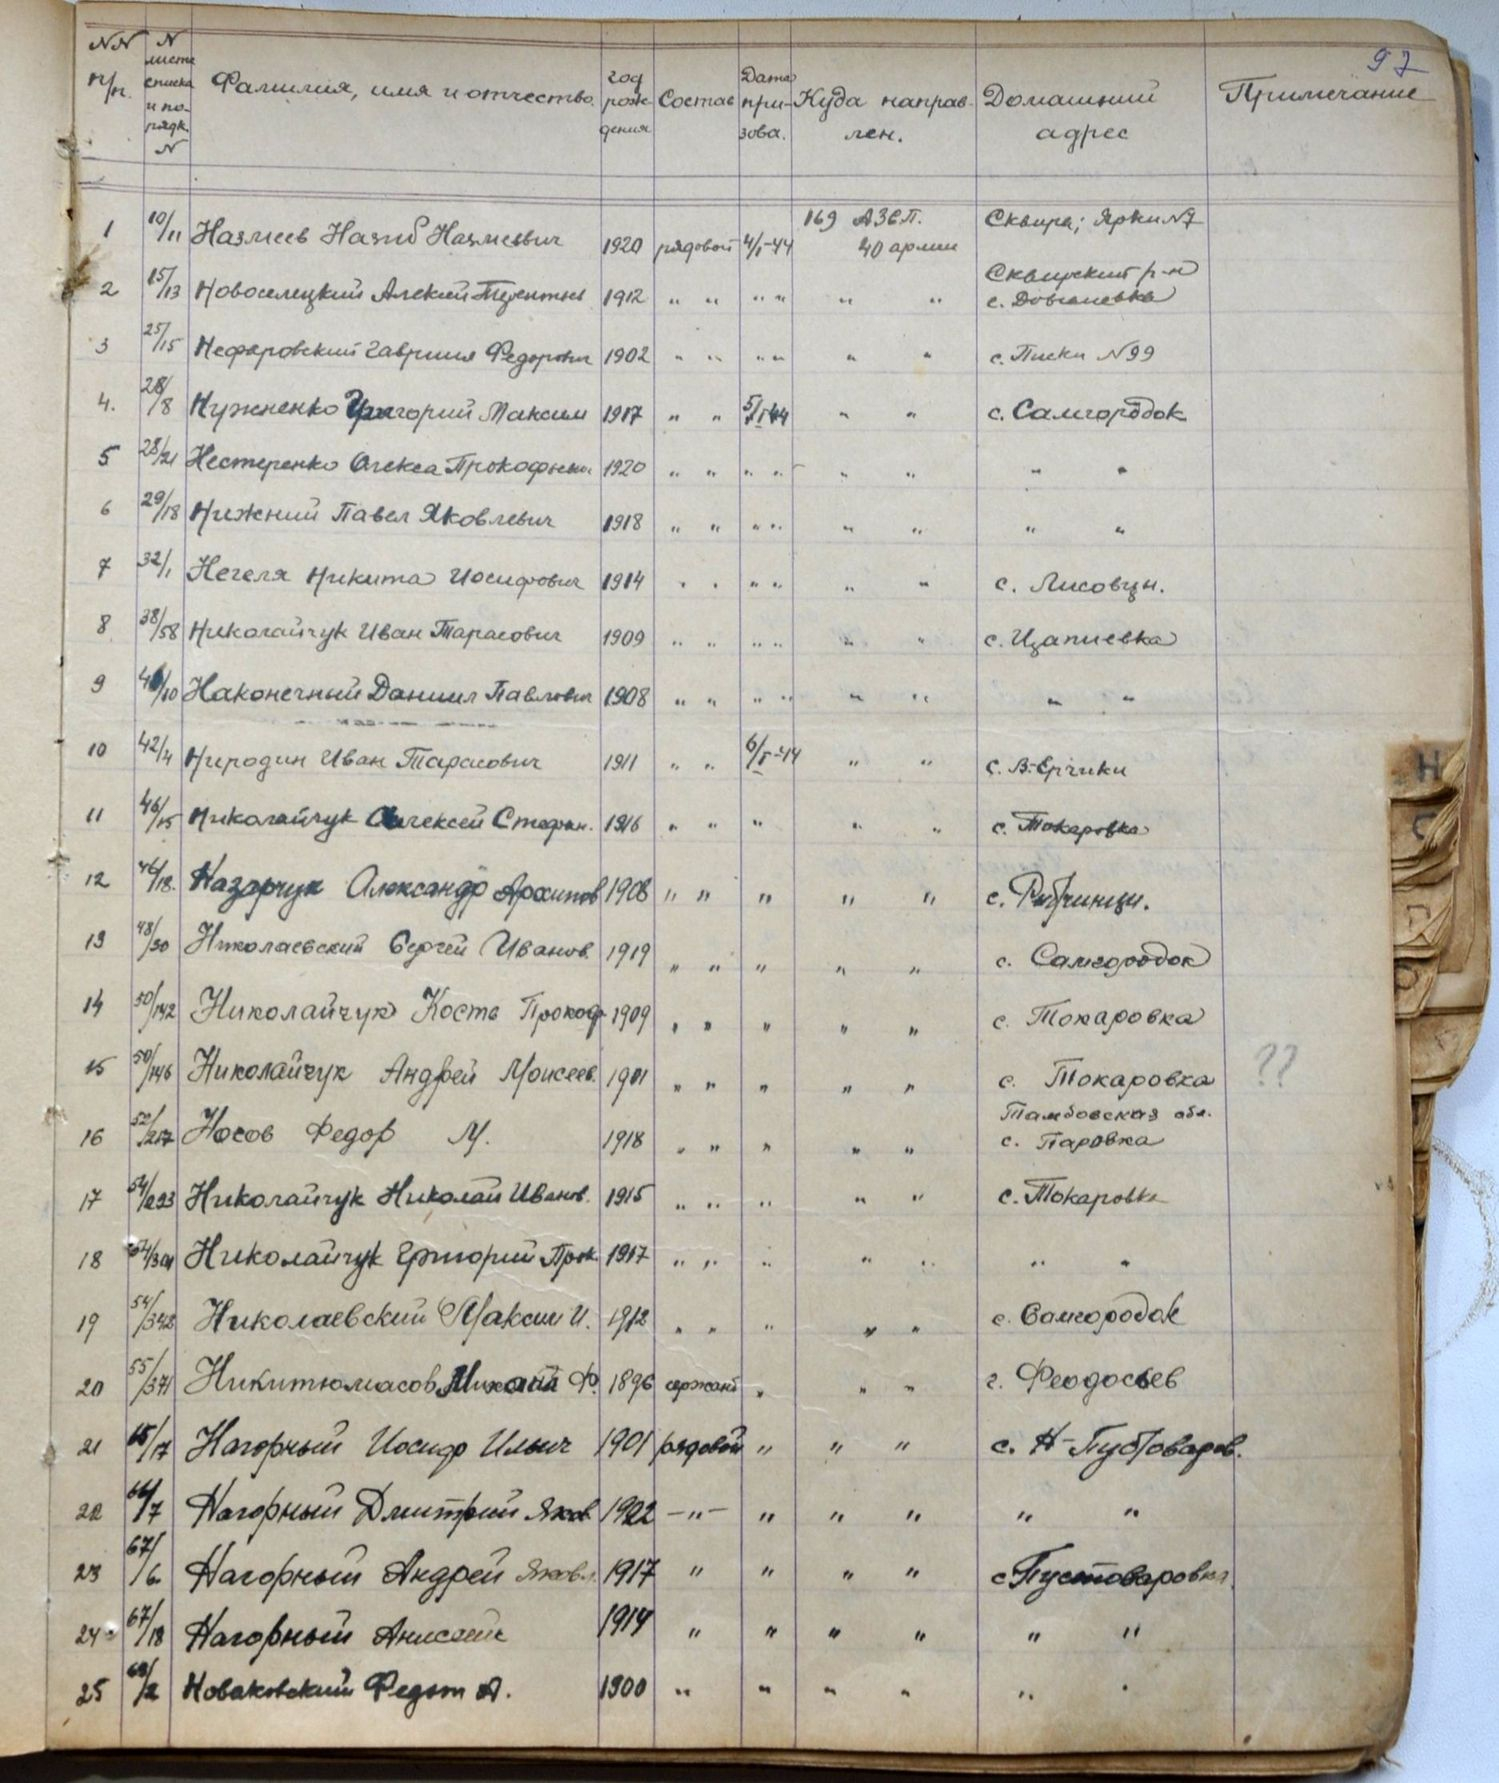 97
NN п/п. N листа списка и по-рядк. N Фамилия, имя и отчество. год рож-дения Состав Дата при-зова. Куда направ-лен. Домашний адрес Примечание
1 10/11 Назмеев Назиб Назмеевич 1920 рядовой 4/I-44 169 АЗСП. 40 армии Сквира; Ярки N7
2 15/13 Новоселецкий Алексей 1912 " " " " " " Сквирский р-н с. Довгалевка
3 25/15 Нефаровский Гавриил Федорович 1902 " " " " " " с. Писки N99
4. 28/8 Нужненко Григорий Максим 1917 " " 5/I-44 " " с. Самгородок
5 28/21 Нестеренко Олекса Прокофьевич 1920 " " " " " " " "
6 29/18 Нижний Павел Яковлевич 1918 " " " " " " " "
7 32/1 Негеля Никита Иосифович 1914 " " " " " " с. Лисовцы.
8 38/58 Николайчук Иван Тарасович 1909 " " " " " " с. Цапиевка
9 /10 Наконечный Даниил Павлович 1908 " " " " " " " "
10 42/4 Ниродин Иван Тарасович 1911 " " 6/I-44 " " с. В-Ерчики
11 46/15 Николайчук Алексей Стефан. 1916 " " " " " с. Токаровка
12 46/18. Назарчук Александр Архипов 1908 " " " " " с. Рибчинци.
13 48/50 Николаевский Сергей Иванов. 1919 " " " " " с. Самгородок
14 50/142 Николайчук Кость Прокоф. 1909 " " " " " с. Токаровка
15 50/146 Николайчук Андрей Моисеев. 1901 " " " " " с. Токаровка ??
16 52/217 Носов Федор М. 1918 " " " " " Тамбовская обл. с. Паровка
17 54/293 Николайчук Николай Иванов. 1915 " " " " " с. Токаровка
18 54/301 Николайчук Григорий Прок. 1917 " " " " " " "
19 54/342 Николаевский Максим И. 1912 " " " " " с. Самгородок
20 55/371 Никитюмасов Михаил Ф. 1896 сержант " " " г. Феодосьев
21 65/17 Нагорный Иосиф Ильич 1901 рядовой " " " с. Н-Пустоваров.
22 66/7 Нагорный Дмитрий Яков. 1922 -"- " " " " "
23 67/6. Нагорный Андрей Яковл. 1917 " " " " с Пустоваровка
24 67/18 Нагорный Анисим 1914 " " " " " "
25 68/2 Новаковский Федот А. 1900 " " " " " "
Н
С